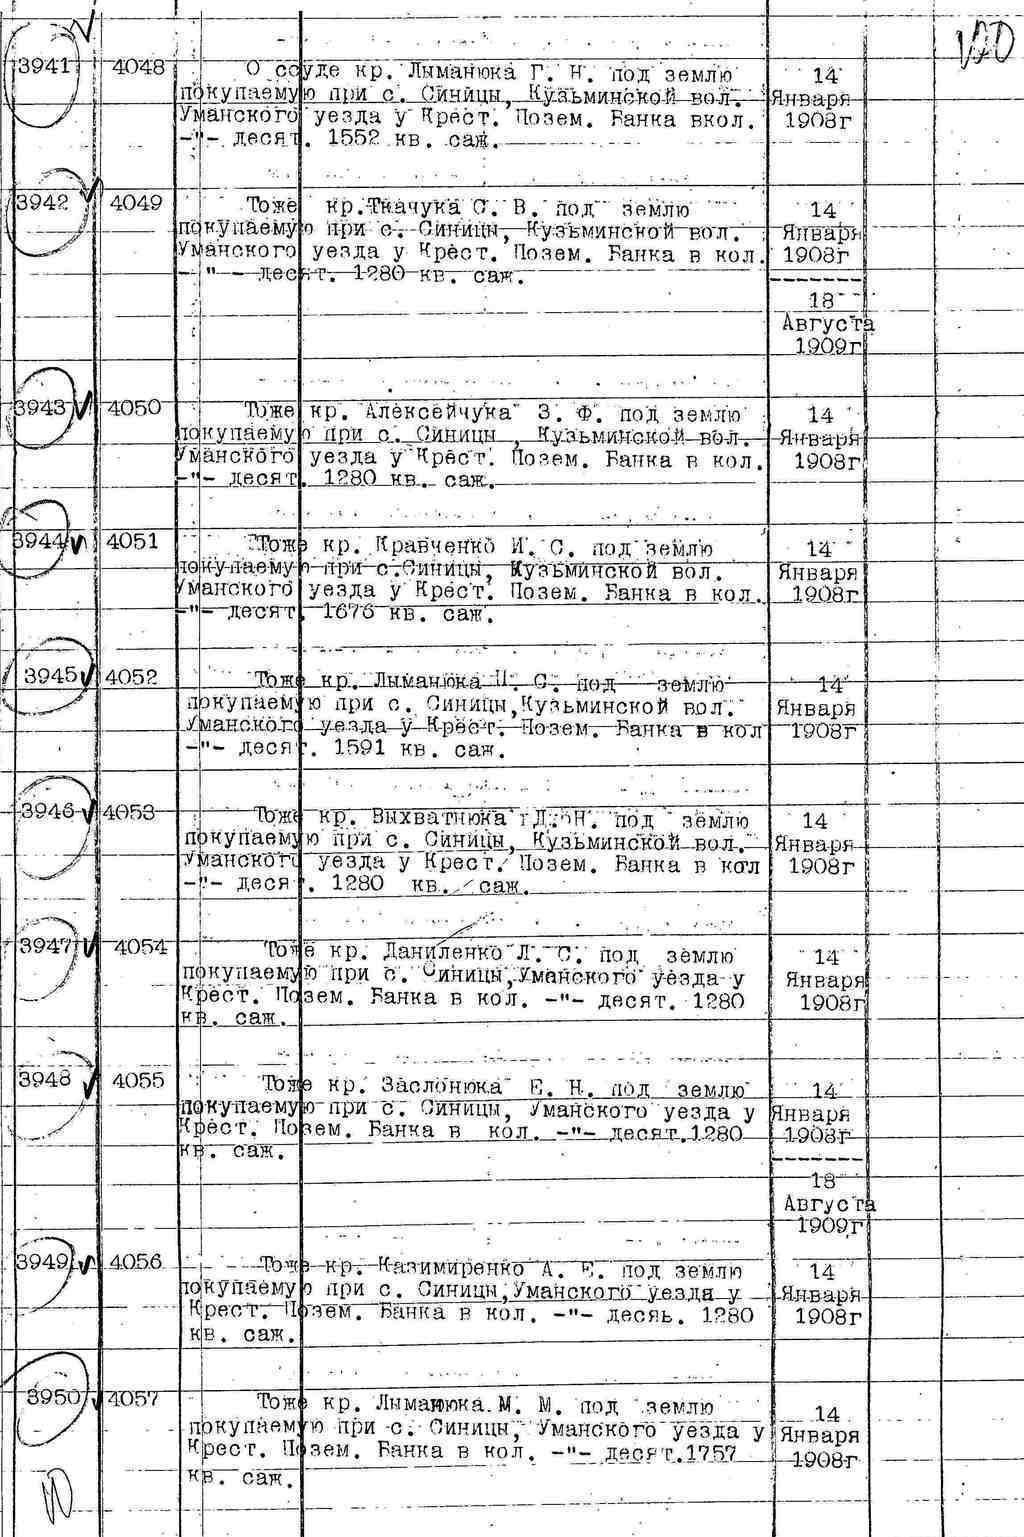 120
3941 4048 О ссуде кр. Лыманюка Г. Н. под землю 14
покупаемую при с. Синицы, Кузьминской вол. Января
Уманского уезда у Крест. Позем. Банка вкол. 1908г
-"- десят. 1552 кв. саж.
3942 4049 Тоже кр.Ткачука С. В. под землю 14
покупаемую при с. Синицы, Кузьминской вол. Января
Уманского уезда у Крест. Позем. Банка в кол. 1908г
-"- десят. 1280 кв. саж.
18
Августа
1909г
3943 4050 Тоже кр. Алексейчука З. Ф. под землю 14
покупаемую при с. Синицы , Кузьминской вол. Января
Уманского уезда у Крест. Позем. Банка в кол. 1908г
-"- десят. 1280 кв. саж.
3944 4051 Тоже кр. Кравченко И. С. под землю 14
покупаемую при с.Синицы, Кузьминской вол. Января
Уманского уезда у Крест. Позем. Банка в кол. 1908г
-"- десят. 1676 кв. саж.
3945 4052 Тоже кр. Лыманюка С. под землю 14
покупаемую при с. Синицы,Кузьминской вол. Января
Уманского уезда у Крест. Позем. Банка в кол 1908г
-"- десят. 1591 кв. саж.
3946 4053 Тоже кр. Выхватнюка Д. Н. под землю 14
покупаемую при с. Синицы, Кузьминской вол. Января
Уманского уезда у Крест. Позем. Банка в кол 1908г
-"- десят. 1280 кв. саж.
3947 4054 Тоже кр. Даниленко Л. С. под землю 14
покупаемую при с. Синицы,Уманского уезда у Января
Крест. Позем. Банка в кол. -"- десят. 1280 1908г
кв. саж.
3948 4055 Тоже кр. Заслонюка Е. Н. под землю 14
покупаемую при с. Синицы, Уманского уезда у Января
Крест. Позем. Банка в кол. -"- десят.1280 1908г
кв. саж.
18
Августа
1909г
3949 4056 Тоже кр. Казимиренко А. Е. под землю 14
покупаемую при с. Синицы,Уманского уезда у Января
Крест. Позем. Банка в кол. -"- десяь. 1280 1908г
кв. саж.
3950 4057 Тоже кр. Лыманюка М. М. под землю 14
покупаемую при с. Синицы, Уманского уезда у Января
Крест. Позем. Банка в кол. -"- десят.1757 1908г
кв. саж.
10